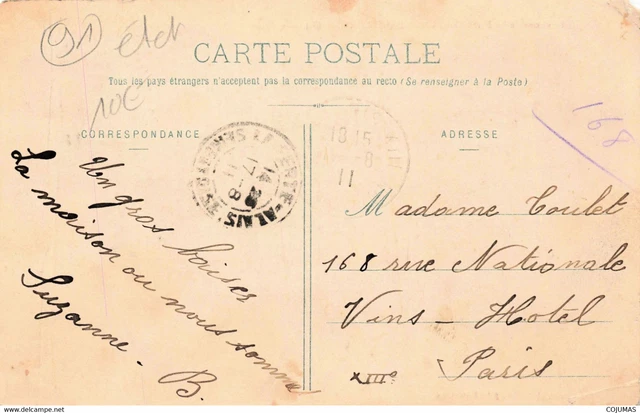 91 état
10€
CARTE POSTALE
Tous les pays étrangers n'acceptent pas la correspondance au recto (Se renseigner à la Poste)
CORRESPONDANCE
ADRESSE
168
Un gros baiser
La maison ou nous somme
Suzanne.
B.
11
Madame Coulet
168 rue Nationale
Vins - Hotel
Paris
XIIIe
COJUMAS